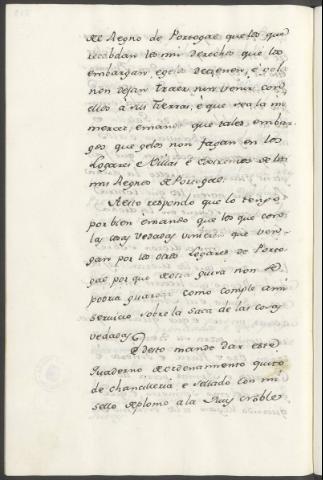 del Regno de Portogal que los que
recabdan los mis derechos que los
embargan, e gelo detienen, e gelo
non dejan traer, nin venir con
ellos à sus tierras, e que sea la mi
merced, e mando que tales embar-
gos que gelos non fagan en los
Logares e Villas e terminos de los
mis Regnos de Portogal.
A esto respondo que lo tengo
por bien e mando que los que con
las cosas vedadas vinieren que ven-
gan por los otros Logares de Porto-
gal por que de otra guisa non se
podria guardar como cumple a mi
servicio sobre la saca de las cosas
vedadas.
E desto mandé dar este
Quaderno de ordenamiento quito
de chancilleria e sellado con mi
sello de plomo a la muy noble